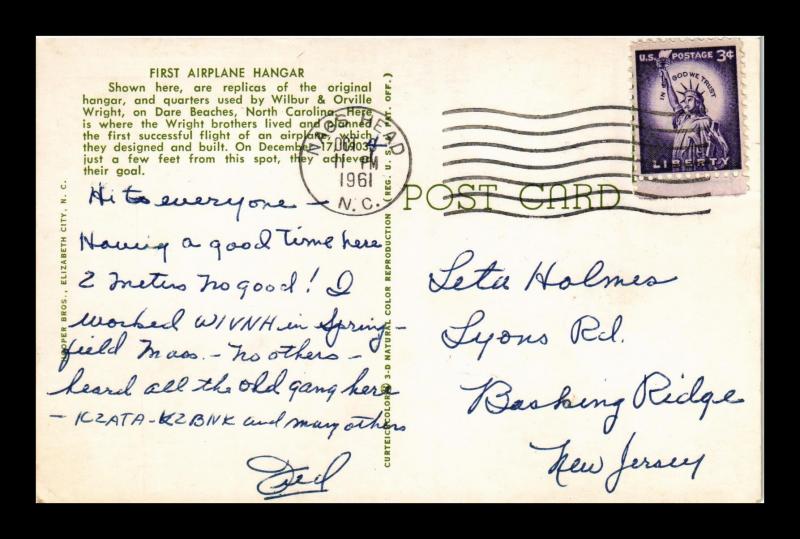 FIRST AIRPLANE HANGAR
Shown here, are replicas of the original
hangar, and quarters used by Wilbur & Orville
Wright, on Dare Beaches, North Carolina. Here
is where the Wright brothers lived and planned
the first successful flight of an airplane, which
they designed and built. On December 17, 1903,
just a few feet from this spot, they achieved
their goal.
Hi to everyone –
Having a good time here
2 meters no good! I
worked W1VNH in Spring-
field Mass. – no others –
heard all the old gang here
– K2ATA - K2BNK and many others
ELIZABETH CITY, N. C.
CURTEICHCOLOR 3-D NATURAL COLOR REPRODUCTION (REG. U. S. PAT. OFF.)
NAGS HEAD
11 PM
1961
N. C.
U.S. POSTAGE 3¢
IN GOD WE TRUST
LIBERTY
POST CARD
Leta Holmes
Lyons Rd.
Basking Ridge
New Jersey